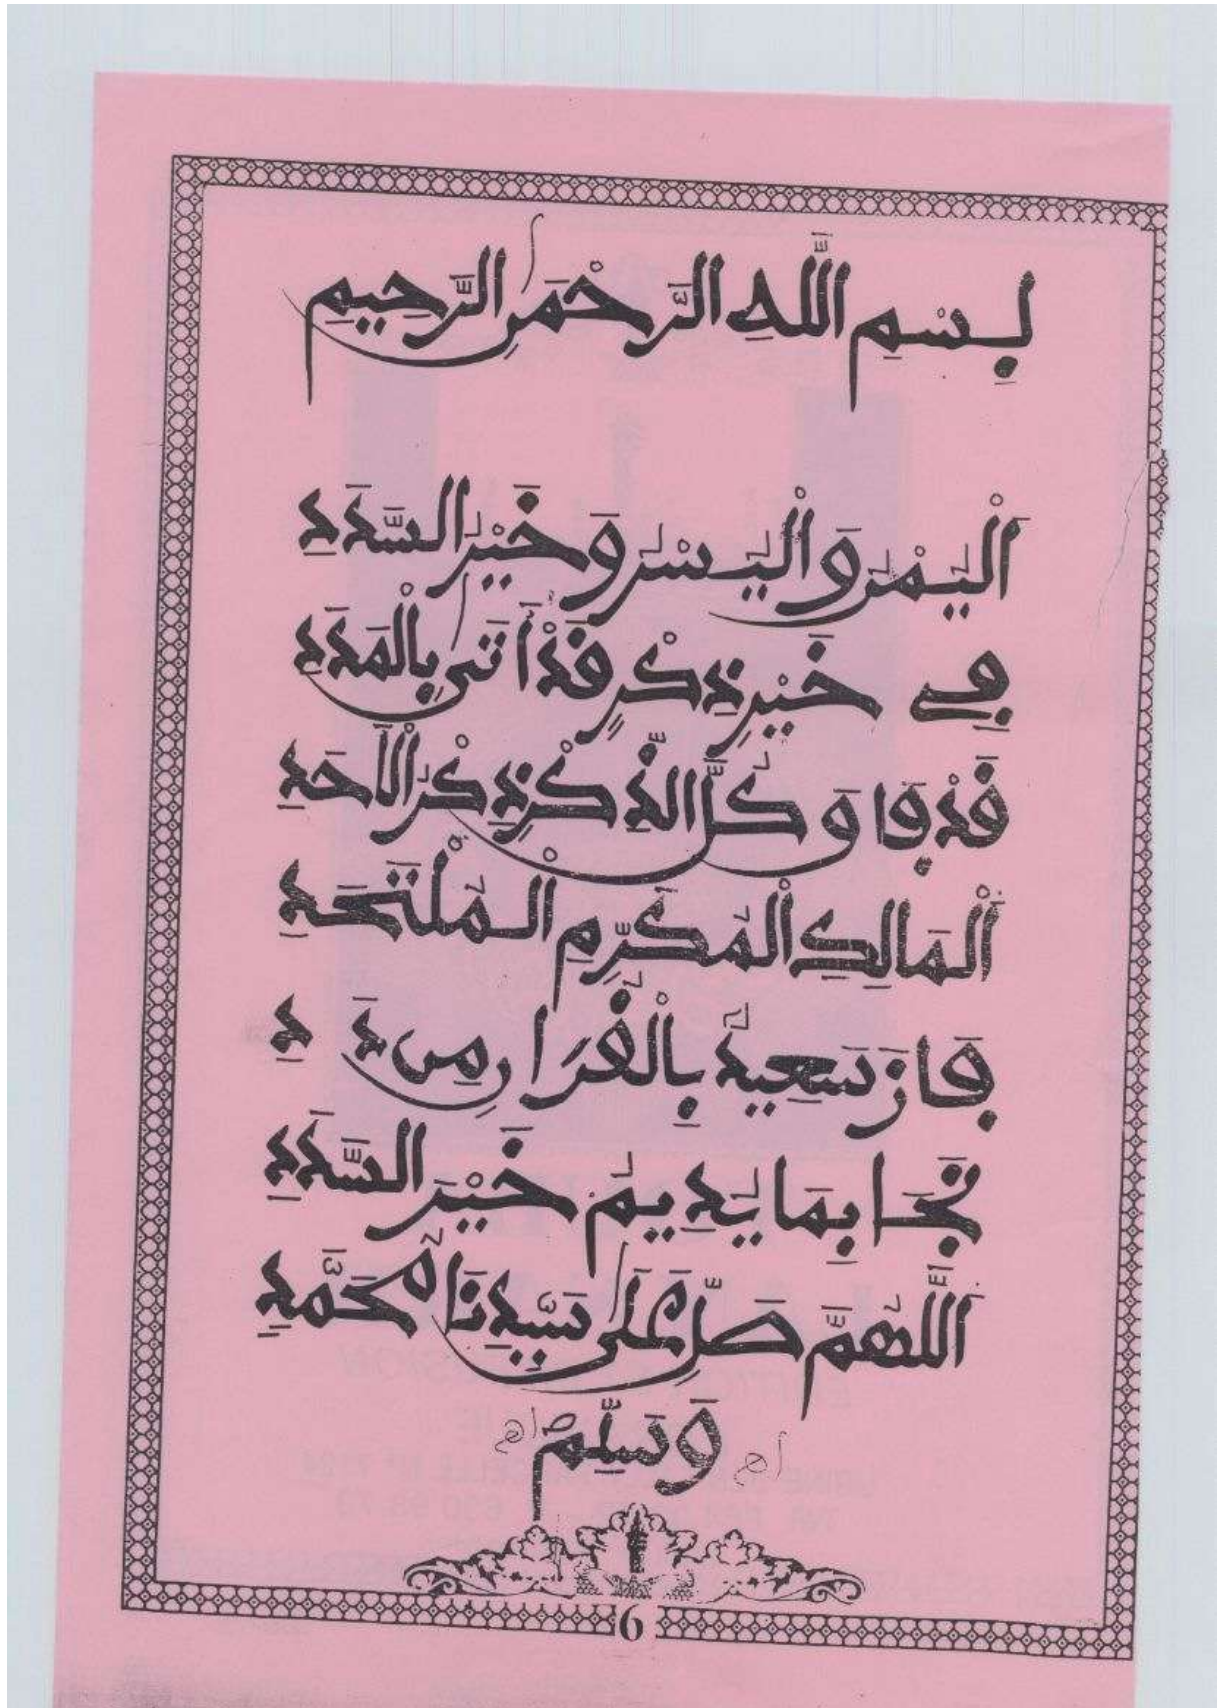 بِسْمِ اللَّهِ الرَّحْمَنِ الرَّحِيمِ
الْيُمْنُ وَالْيُسْرُ وَخَيْرُ السَّدَدِ
فِي خَيْرِ ذِكْرٍ قَدْ أَتَى بِالْمَدَدِ
قَدْ فَاقَ كُلَّ الذِّكْرِ ذِكْرُ الْأَحَدِ
الْمَالِكِ الْمُكَرِّمِ الْمُلْتَحَدِ
فَازَ سَعِيدٌ بِالْفَرَارِ مِن دَدِ
نَجَا بِمَا يُدِيمُ خَيْرَ السَّدَدِ
اللَّهُمَّ صَلِّ عَلَى سَيِّدِنَا مُحَمَّدٍ
وَسَلِّمْ
6